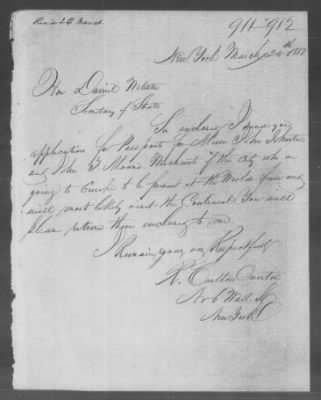 911-912
New York March 24th
Hon Daniel Webster
Secretary of State
Sir enclosed I
application for Passports for Messrs John Johnston
and John T Moore Merchant of this City who are
going to Europe to be present at the Worlds fair and
will most likely visit the Continent You will
please return them enclosing to me.
I Remain your very Respectfully
No 6 Wall St
New York